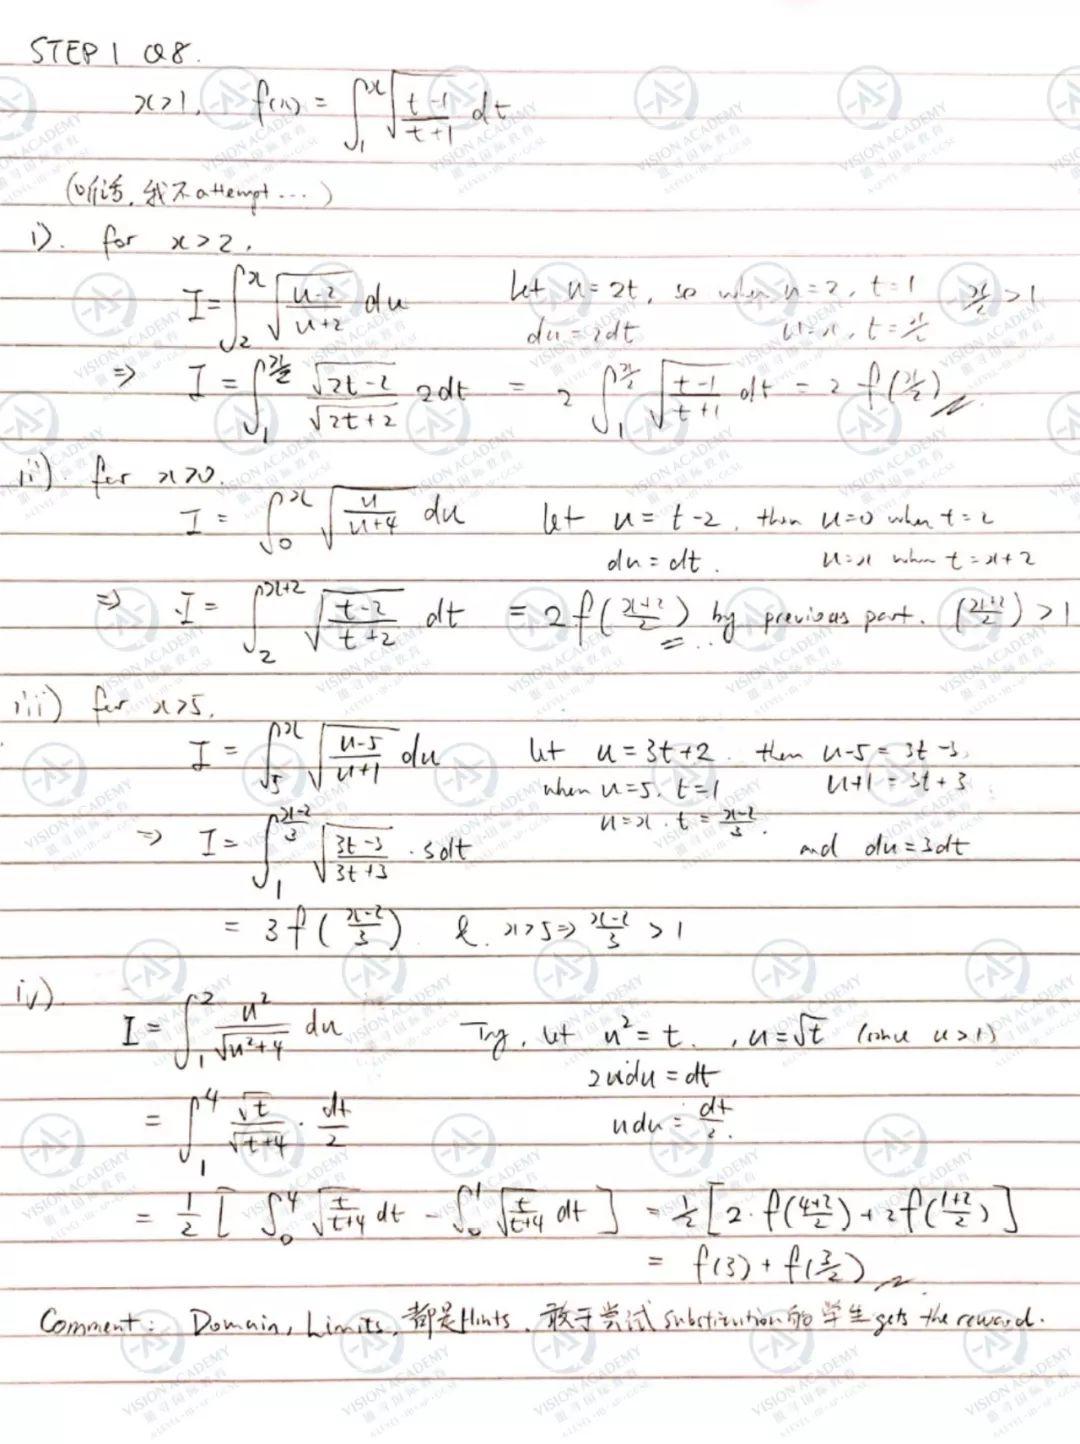 STEP 1 Q8.
x>1, f(x) = ∫₁ˣ √((t-1)/(t+1)) dt
(听话, 我不attempt...)
i). for x>2,
I = ∫₂ˣ √((u-2)/(u+2)) du Let u=2t, so when u=2, t=1 x/2 >1
du=2dt u=x, t=x/2
⇒ I = ∫₁^(x/2) √(2t-2)/√(2t+2) 2dt = 2 ∫₁^(x/2) √((t-1)/(t+1)) dt = 2 f(x/2)
ii) for x>0.
I = ∫₀ˣ √(u/(u+4)) du let u = t-2, then u=0 when t=2
du=dt. u=x when t=x+2
⇒ I = ∫₂^(x+2) √((t-2)/(t+2)) dt = 2f((x+2)/2) by previous part. ((x+2)/2) >1
iii) for x>5,
I = ∫₅ˣ √((u-5)/(u+1)) du let u=3t+2 then u-5=3t-3,
when u=5, t=1 u+1=3t+3
u=x, t=(x-2)/3.
⇒ I = ∫₁^((x-2)/3) √((3t-3)/(3t+3)) · 3dt and du=3dt
= 3f((x-2)/3) & x>5 ⇒ (x-2)/3 >1
iv)
I = ∫₁² u²/√(u²+4) du Try, let u²=t, u=√t (since u>1)
2udu=dt
= ∫₁⁴ √t/√(t+4) · dt/2 udu=dt/2.
= 1/2 [ ∫₀⁴ √(t/(t+4)) dt - ∫₀¹ √(t/(t+4)) dt ] = 1/2 [2·f((4+2)/2) + 2f((1+2)/2)]
= f(3) + f(3/2)
Comment: Domain, Limits, 都是Hints, 敢于尝试 substitution的学生 gets the reward.
VISION ACADEMY
A-LEVEL·IB·AP·GCSE